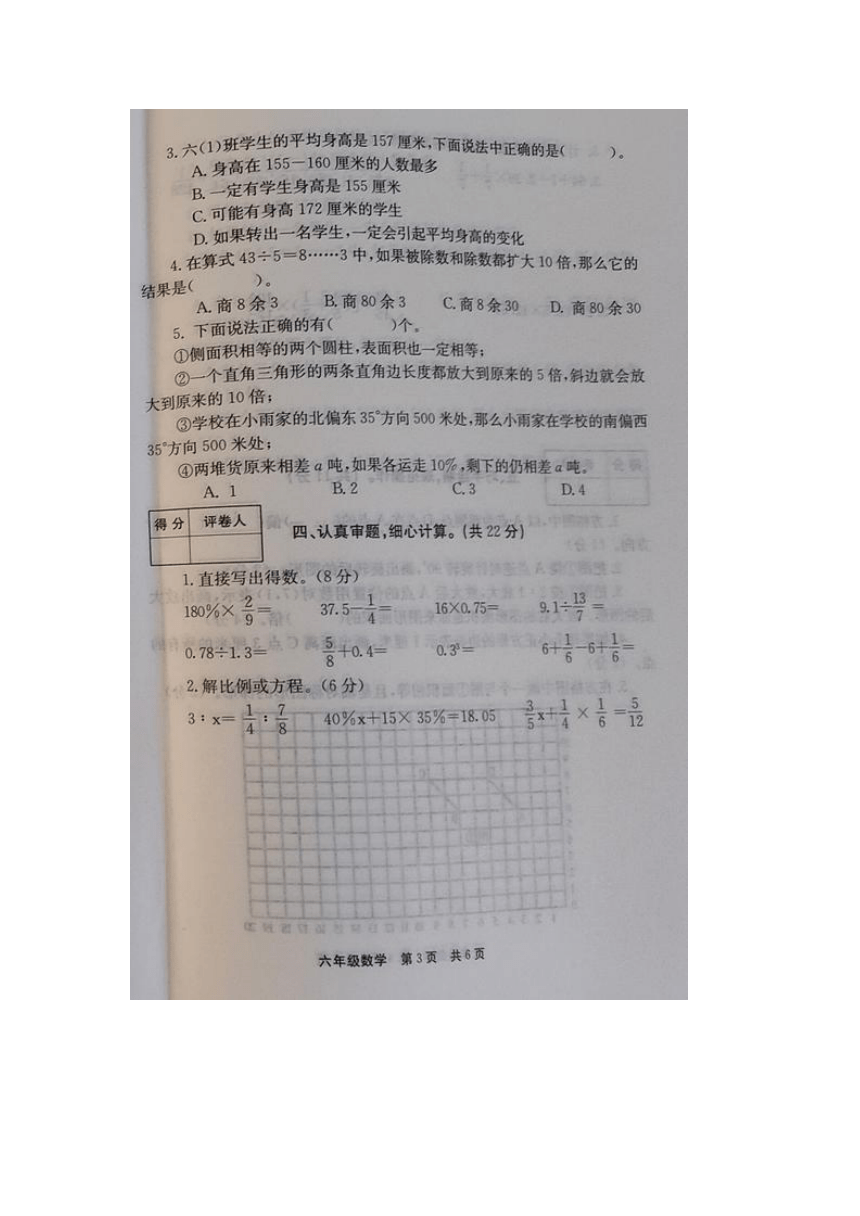 3.六(1)班学生的平均身高是157厘米,下面说法中正确的是(　　)。
A.身高在155-160厘米的人数最多
B.一定有学生身高是155厘米
C.可能有身高172厘米的学生
D.如果转出一名学生,一定会引起平均身高的变化
4.在算式43÷5=8……3中,如果被除数和除数都扩大10倍,那么它的
结果是(　　)。
A.商8余3　B.商80余3　C.商8余30　D.商80余30
5.下面说法正确的有(　　)个。
①侧面积相等的两个圆柱,表面积也一定相等;
②一个直角三角形的两条直角边长度都放大到原来的5倍,斜边就会放
大到原来的10倍;
③学校在小雨家的北偏东35°方向500米处,那么小雨家在学校的南偏西
35°方向500米处;
④两堆货原来相差a吨,如果各运走10%,剩下的仍相差a吨。
A.1　B.2　C.3　D.4
得分　评卷人
四、认真审题,细心计算。(共22分)
1.直接写出得数。(8分)
180%×2/9=　37.5-1/4=　16×0.75=　9.1÷13/7=
0.78÷1.3=　5/8+0.4=　0.3³=　6+1/6-6+1/6=
2.解比例或方程。(6分)
3:x=1/4:7/8　40%x+15×35%=18.05　3/5x+1/4×1/6=5/12
六年级数学　第3页　共6页